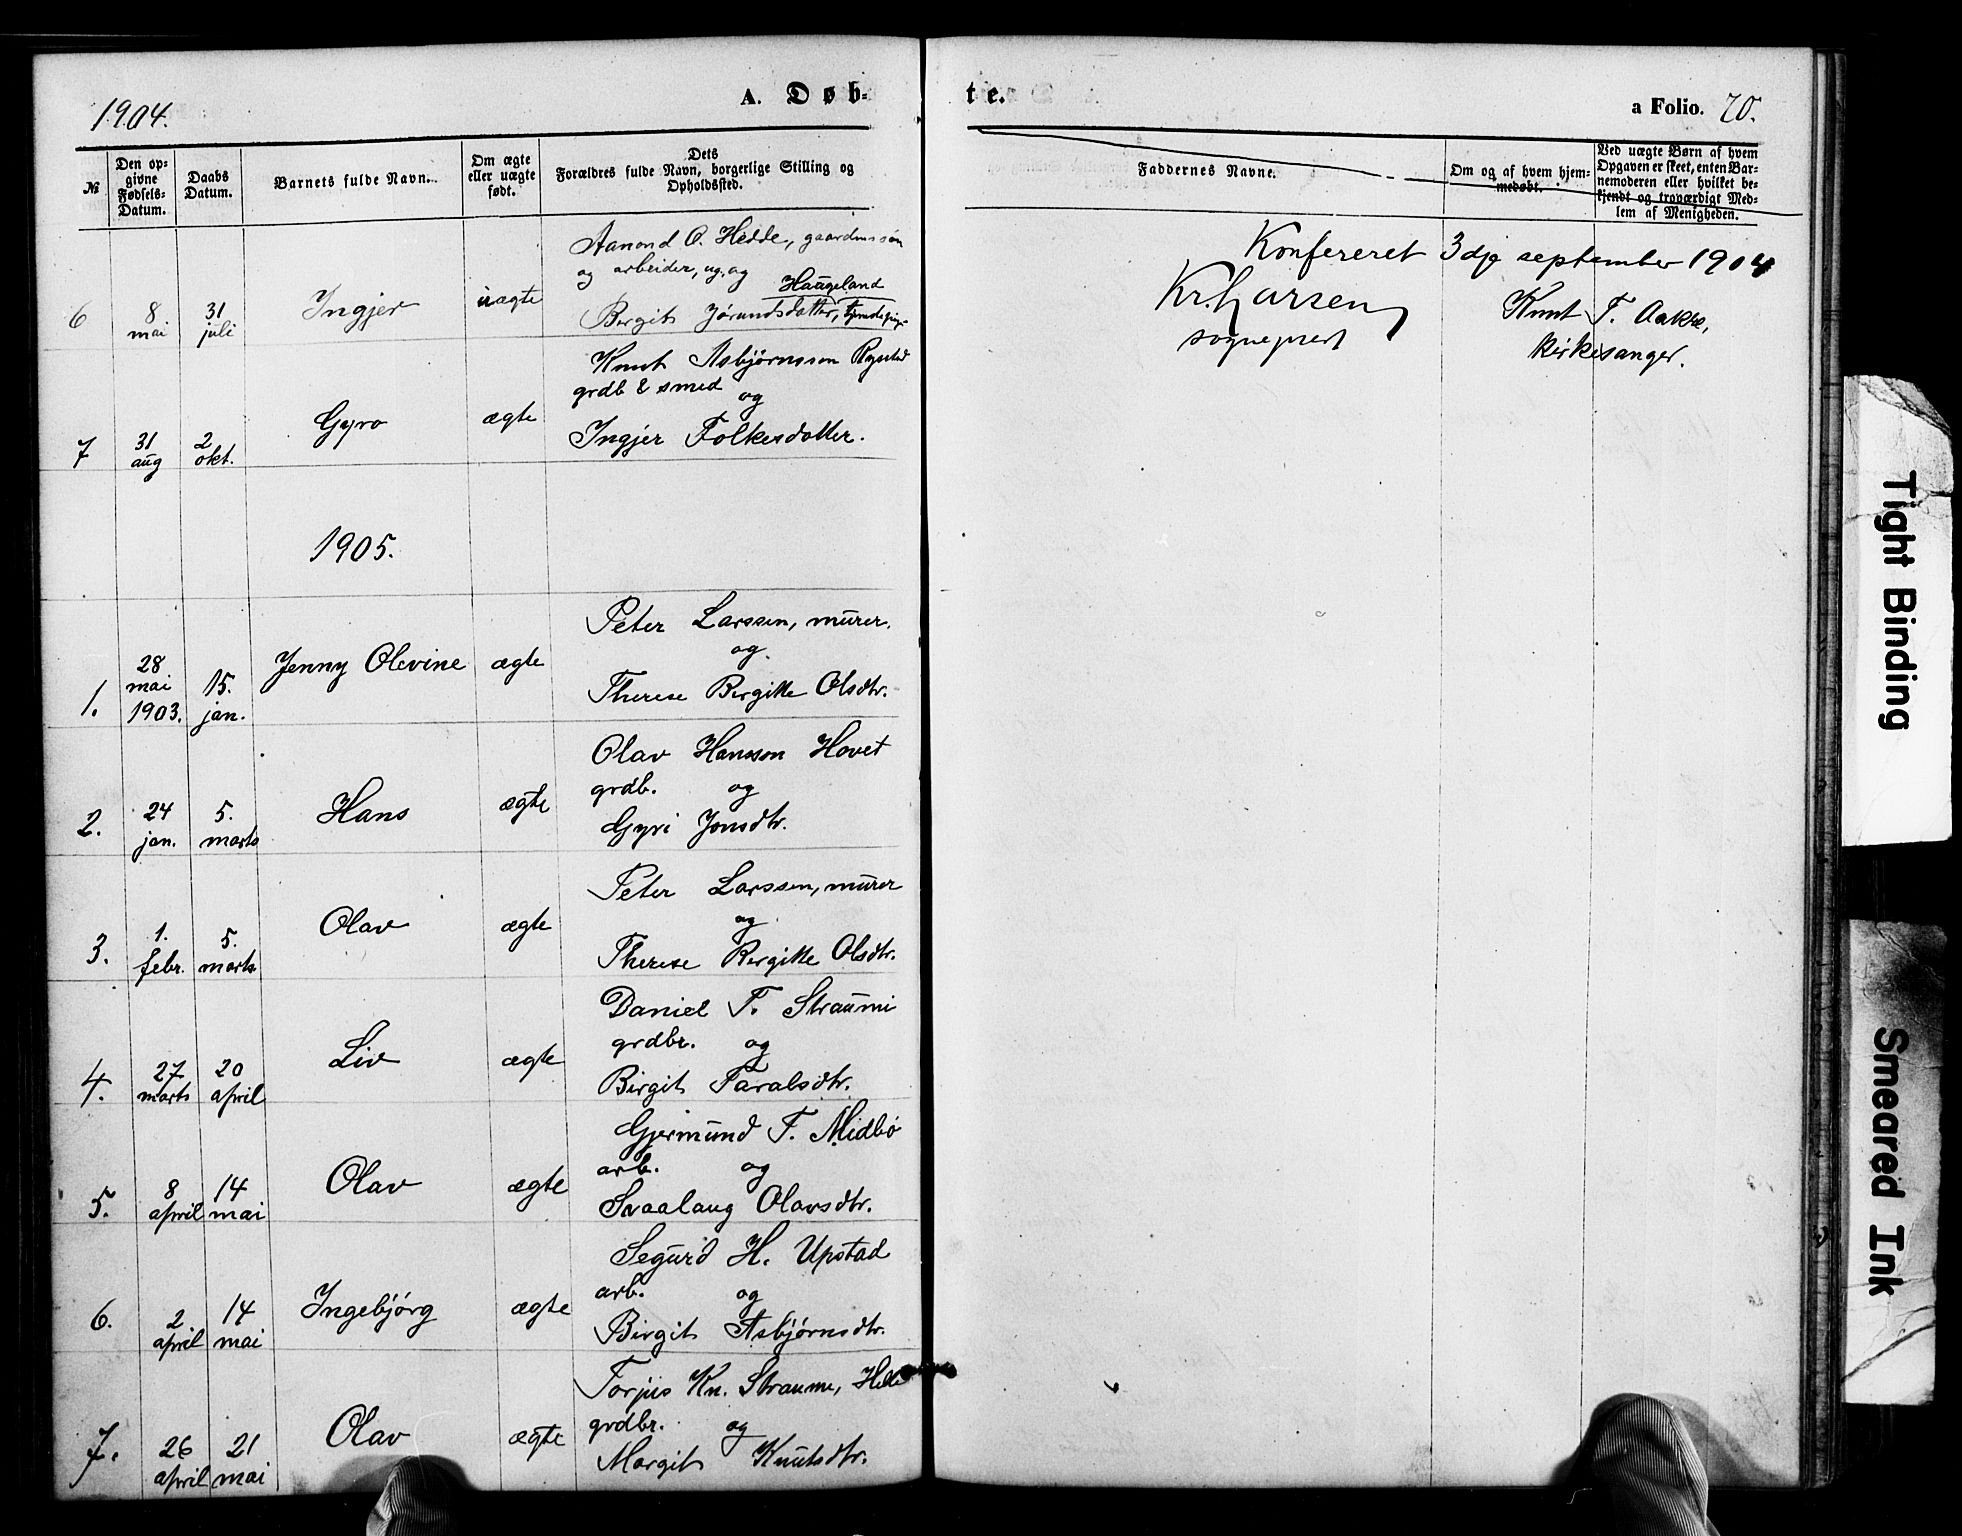 1904.
A. Døb-
te.
a Folio. 70.
№
Den op-
givne
Fødsels-
Datum.
Daabs
Datum.
Barnets fulde Navn.
Om ægte
eller uægte
født.
Dets
Forældres fulde Navn, borgerlige Stilling og
Opholdssted.
Faddernes Navne.
Om og af hvem hjem-
medøbt.
Ved uægte Børn af hvem
Opgaven er skeet, enten Bar-
nemoderen eller hvilket be-
kjendt og troværdigt Med-
lem af Menigheden.
6
8
mai
31
juli
Ingjer
uægte
Aanond O. Hedde, gaardmssøn
og arbeider, ug. og
Haugeland
Birgit Jørundsdatter,
Konfereret 3dje september 1904
Kr. Larsen
sogneprest
Knut F. Aakre,
kirkesanger.
7
31
aug
2
okt.
Gyro
ægte
Knut Asbjørnsson Rysstad
grdb & smed
og
Ingjer Folkesdatter.
1905.
1.
28
mai
1903.
15.
jan.
Jenny Olevine
ægte
Peter Larssen, murer.
og
Therese Birgitte Olsdtr.
2.
24
jan.
5.
marts
Hans
ægte
Olav Hansson Hovet
grdb. og
Gyri Jonsdtr.
3.
1.
febr.
5.
marts
Olav
ægte
Peter Larssen, murer
og
Therese Birgitte Olsdtr.
4.
27
marts
20
april
Liv
ægte
Daniel F. Straumi
grdbr. og
Birgit Taralsdtr.
5.
8
april
14
mai
Olav
ægte
Gjermund F. Midbø
arb. og
Svaalaug Olavsdtr.
6.
2
april
14
mai
Ingebjørg
ægte
Segurd H. Upstad
arb. og
Birgit Asbjørnsdtr.
7.
26
april
21
mai
Olav
ægte
Torjus Kn. Straume, Helle
grdbr. og
Margit Knutsdtr.
Tight Binding
Smeared Ink